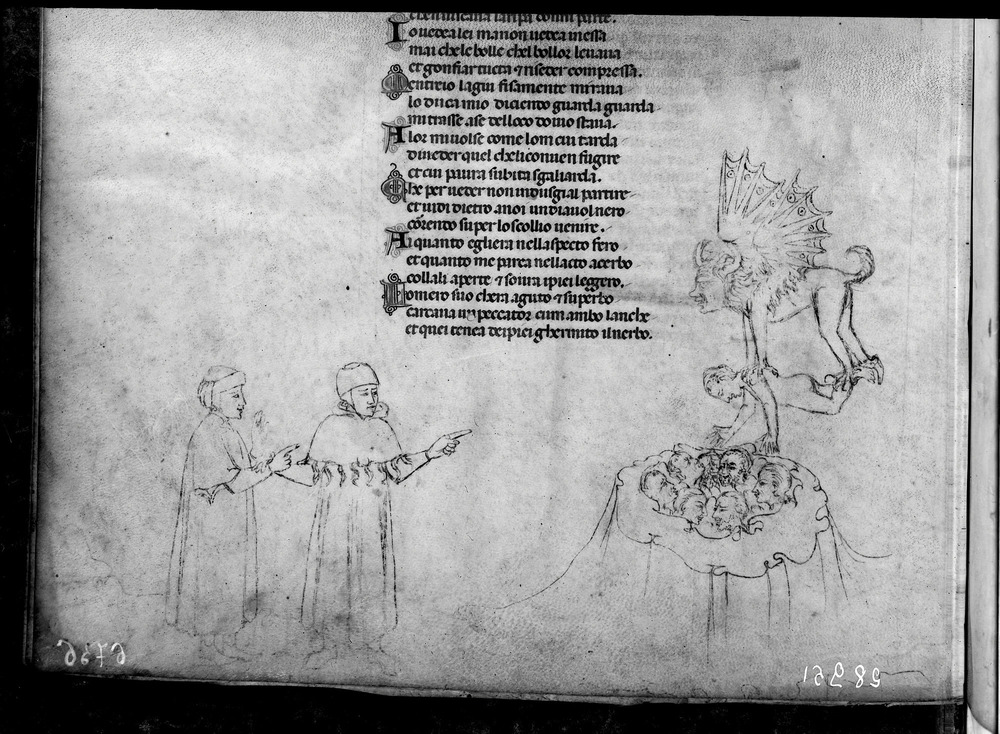 I o uedea lei ma non uedea inessa
mai che le bolle chel bollor leuaua
et gonfiar tucta ⁊ riseder compressa.
M entreio lagiu fisamente miraua
lo duca mio dicendo guarda guarda
mi trasse ase delloco douio staua.
A lor mi uolse come lom cui tarda
di ueder quel che li conuen fugire
et cui paura subita sgaliarda.
C he per ueder non indusgial partire
et uidi dietro anoi un diauol nero
correndo su per lo scollio uenire.
A i quanto egliera nellaspecto fero
et quanto me parea nellacto acerbo
collali aperte ⁊ soura ipiei leggero.
L omero suo chera aguto ⁊ superbo
carcaua un peccator cum ambo lanche
et quei tenea dei piei ghermito ilnerbo.